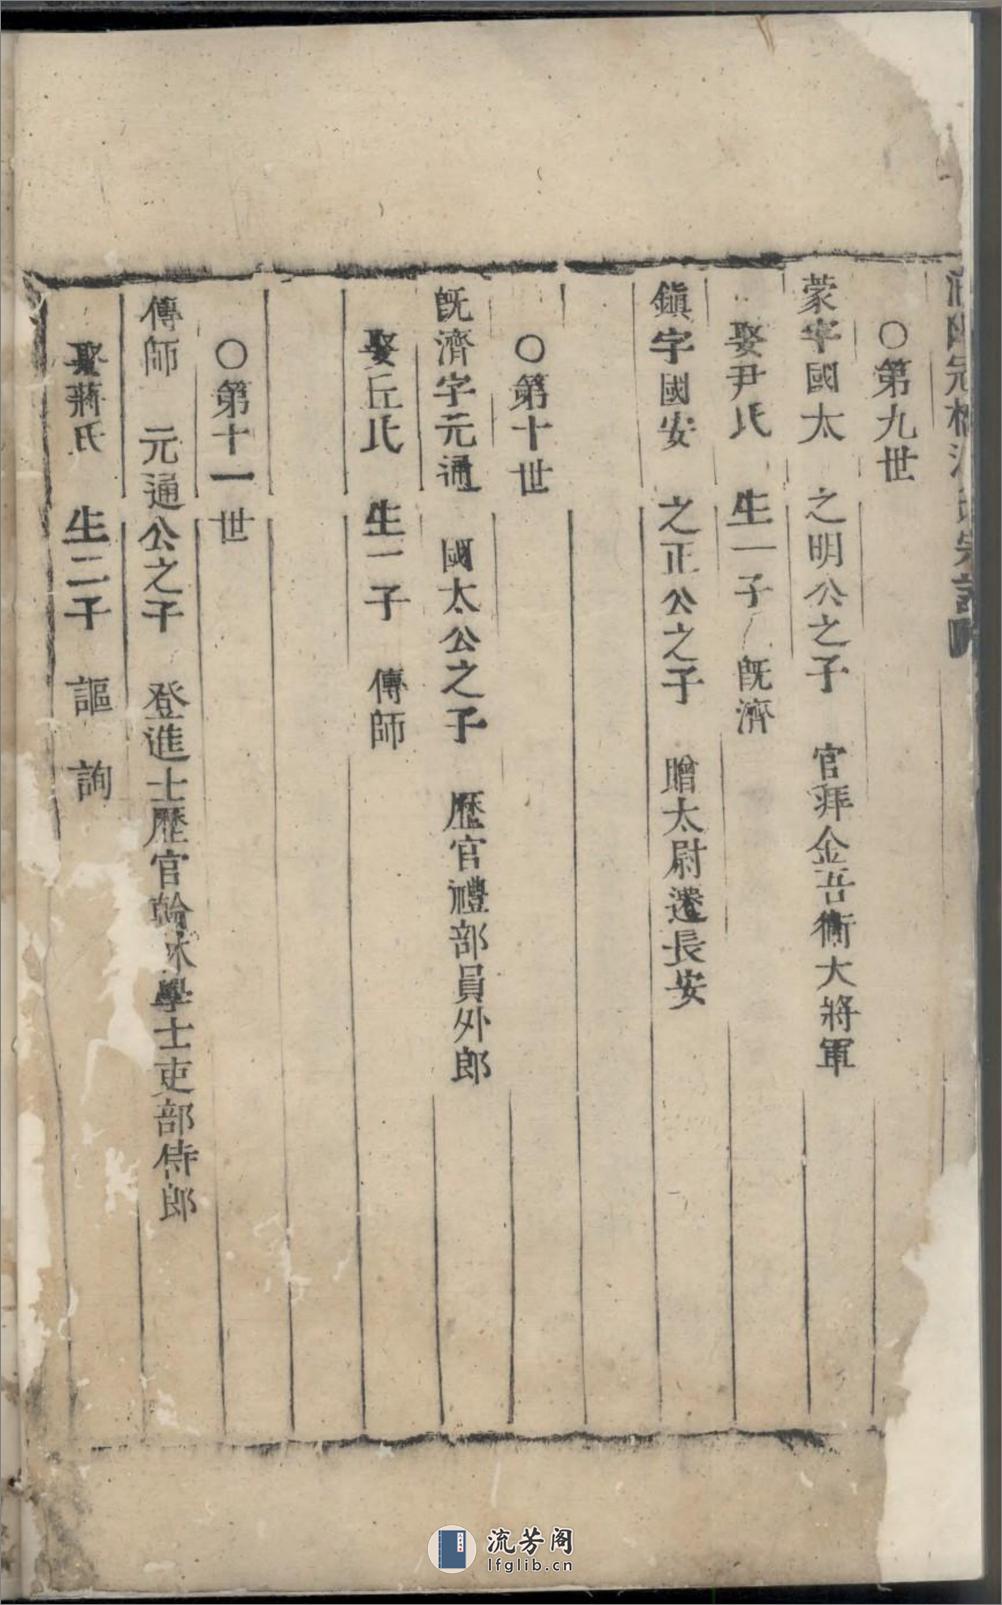 ○第九世
蒙字國太　之明公之子　官拜金吾衛大將軍
娶尹氏　生一子　既濟
鎮字國安　之正公之子　贈太尉遷長安
○第十世
既濟字元通　國太公之子　歷官禮部員外郎
娶丘氏　生一子　傳師
○第十一世
傳師　元通公之子　登進士歷官翰林學士吏部侍郎
娶蔣氏　生二子　謳　詢
流芳阁
lfglib.cn